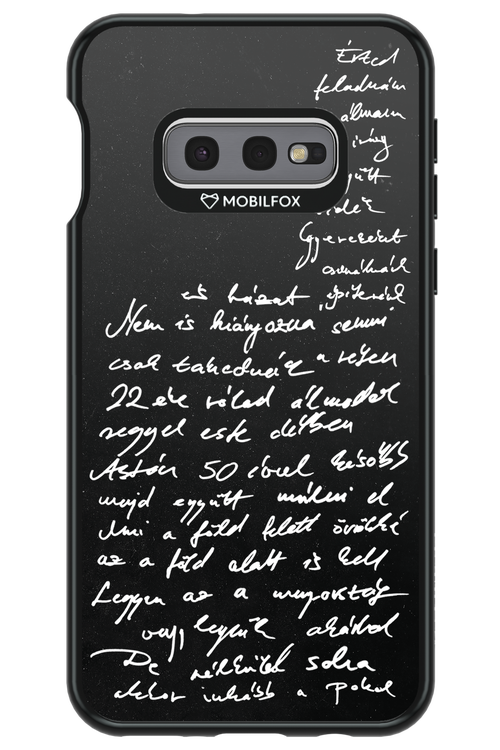 Érted
feladnám
álmaim
irány
együtt
vidék
Gyerekeint
csinálnánk
és házat építenénk
Nem is hiányozna semmi
csak takednéz a résen
22 éve rólad álmodok
reggel este délben
Aztán 50 évvel később
majd együtt múlni el
Ami a föld felett örökké
az a föld alatt is kell
Legyen az a mennyország
vagy legyünk akárhol
De nélküled soha
akkor inkább a pokol
MOBILFOX